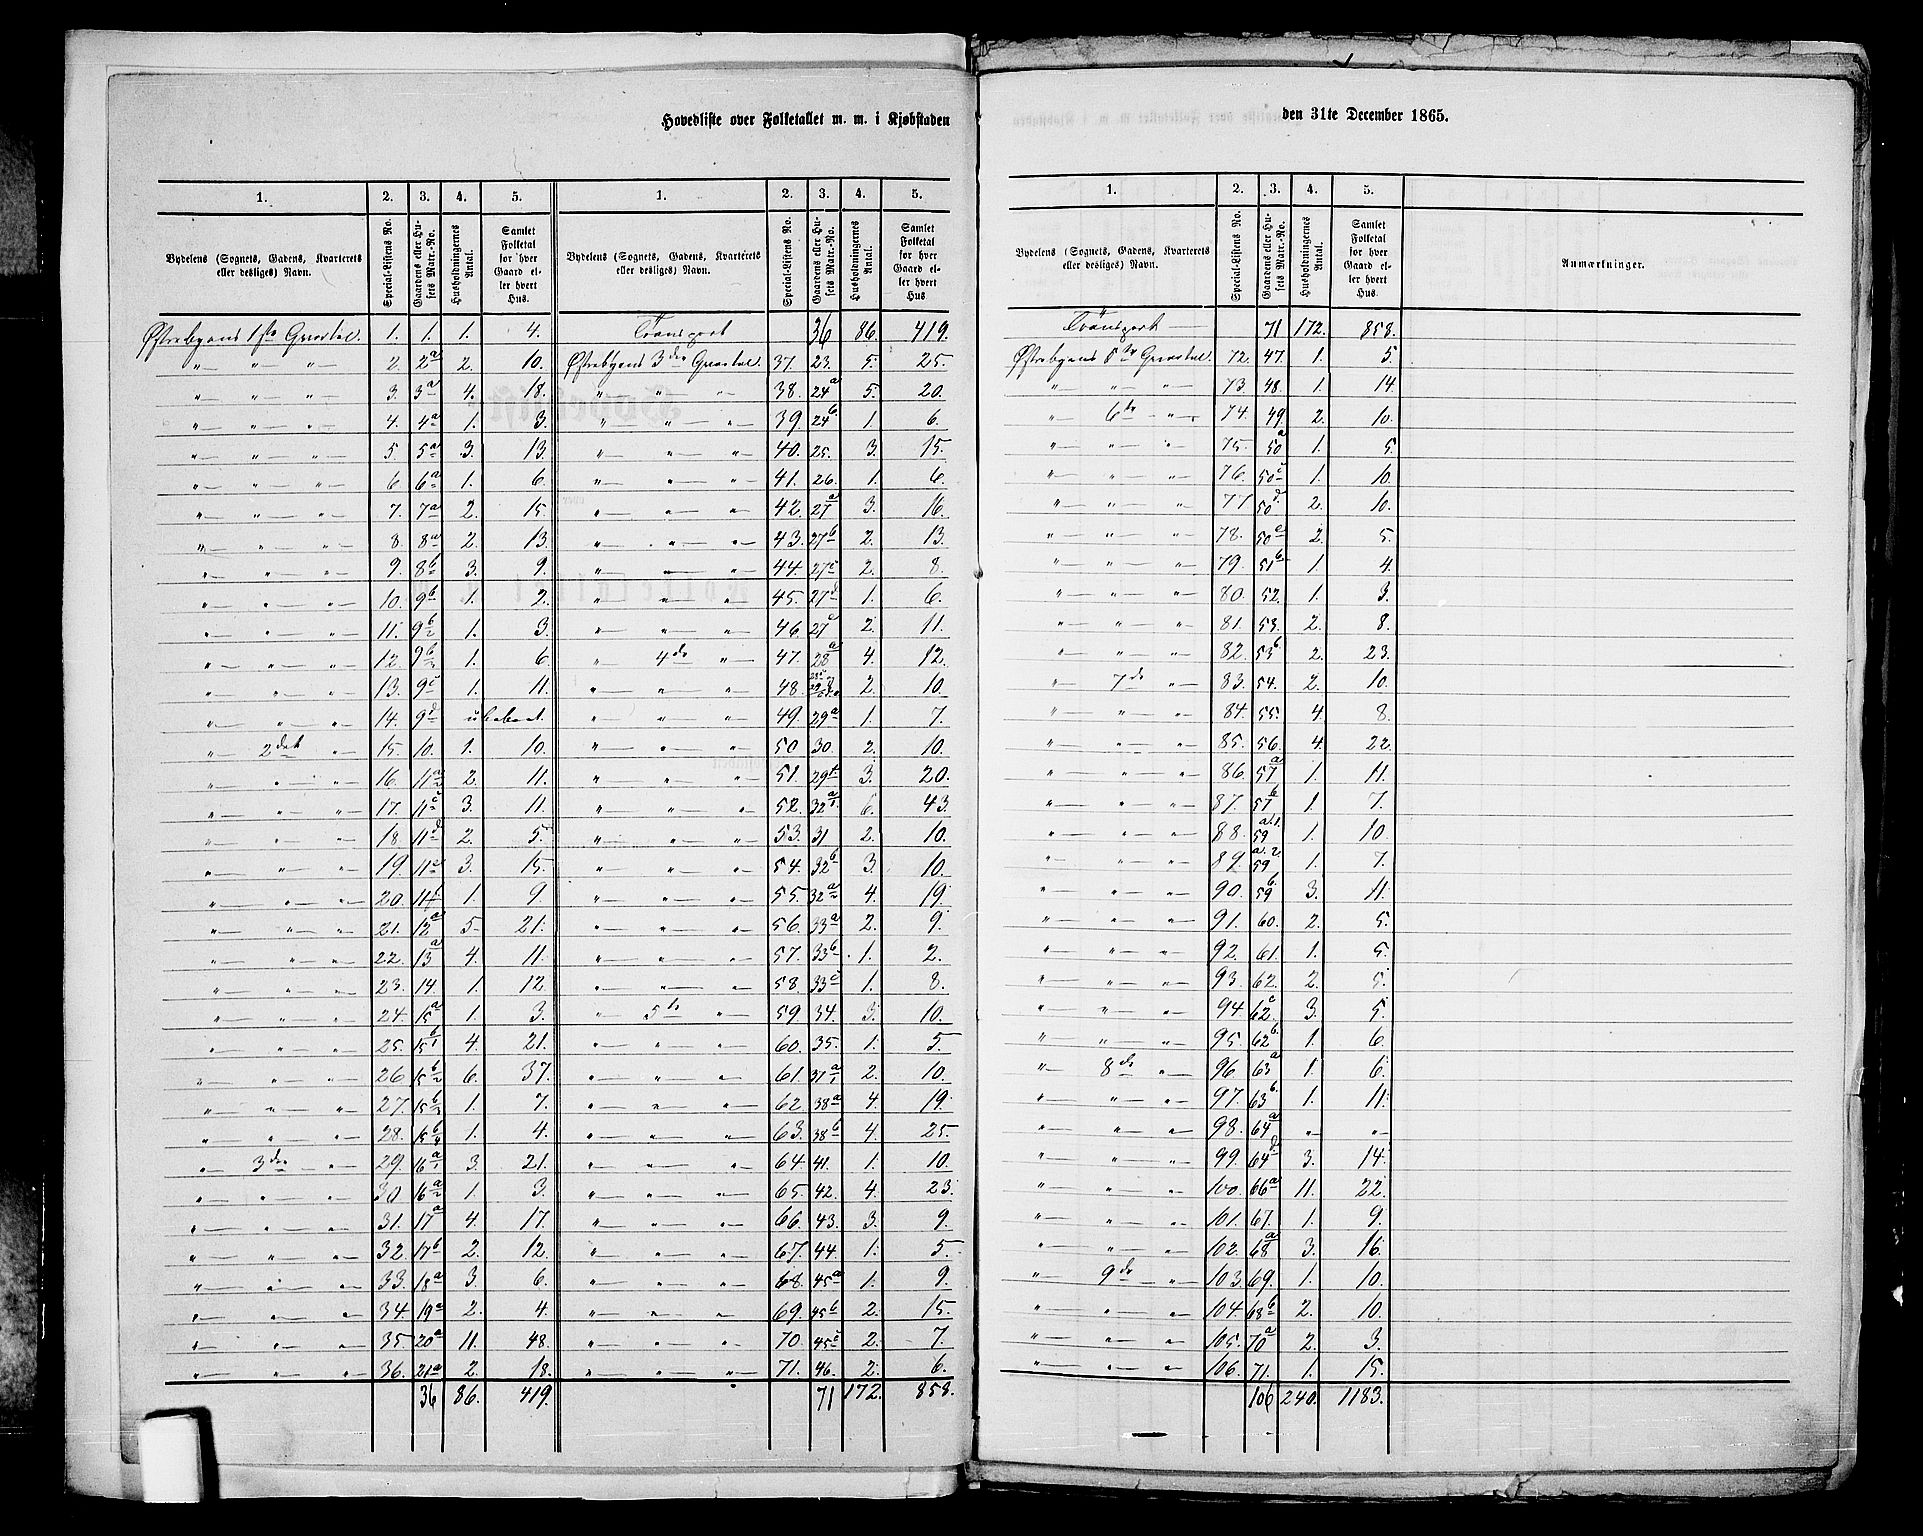 Hovedliste over Folketallet m. m. i Kjøbstaden
1. 2. 3. 4. 5. 1. 2. 3. 4. 5.
Bydelens (Sognets, Gadens, Kvarterets eller desliges) Navn. Special-Listens No. Gaardens eller Husets Matr.-No. Husholdningernes Antal. Samlet Folketal for hver Gaard eller hvert Hus. Bydelens (Sognets, Gadens, Kvarterets eller desliges) Navn. Special-Listens No. Gaardens eller Husets Matr.-No. Husholdningernes Antal. Samlet Folketal for hver Gaard eller hvert Hus.
Østrebyens 1ste Qvartal. 1. 1. 1. 4. Transport 36 86. 419.
„ „ „ 2. 2a 2. 10. Østrebyens 3die Qvartal. 37. 23. 5. 25.
„ „ „ 3. 3a 4. 18. „ „ „ 38. 24a 5. 20.
„ „ „ 4. 4a 1. 3. „ „ „ 39. 24b 1. 6.
„ „ „ 5. 5a 3. 13. „ „ „ 40. 25. 3. 15.
„ „ „ 6. 6a 1. 6. „ „ „ 41. 26. 1. 6.
„ „ „ 7. 7a 2. 15. „ „ „ 42. 27a 3. 16.
„ „ „ 8. 8a 2. 13. „ „ „ 43. 27b 2. 13.
„ „ „ 9. 8b 3. 9. „ „ „ 44. 27c 2. 8.
„ „ „ 10. 9b 1. 2. „ „ „ 45. 27d 1. 6.
„ „ „ 11. 9b/2 1. 3. „ „ „ 46 27e 2. 11.
„ „ „ 12. 9b/3 1. 6. „ 4de „ 47. 28a 4. 12.
„ „ „ 13. 9c 1. 11. „ „ „ 48. 2. 10.
„ „ „ 14. 9d ubeboet. „ „ „ 49. 29a 1. 7.
„ 2det „ 15. 10. 1. 10. „ „ „ 50 30. 2. 10.
„ „ „ 16. 11a/2 2. 11. „ „ „ 51. 29b 3. 20.
„ „ „ 17. 11c 3. 11. „ „ „ 52. 32a/1 6. 43.
„ „ „ 18 11d 2. 5. „ „ „ 53. 31 2. 10.
„ „ „ 19. 11e 3. 15. „ „ „ 54. 32b 3. 10.
„ „ „ 20. 11f 1. 9 „ „ „ 55. 32a/2 4. 19.
„ „ „ 21. 12a 5 21. „ „ „ 56. 33a 2. 9.
„ „ „ 22. 13a 4. 11. „ „ „ 57. 33b 1. 2.
„ „ „ 23. 14. 1. 12. „ „ „ 58. 33c 1. 8.
„ „ „ 24. 15a 1. 3. „ 5te „ 59 34. 3. 10.
„ „ „ 25. 15b/1 4. 21. „ „ „ 60. 35. 1. 5.
„ „ „ 26 15b/2 6. 37. „ „ „ 61. 37a/1 2. 10.
„ „ „ 27. 15b/3 1. 7. „ „ „ 62 38a 4. 19.
„ „ „ 28. 15b/4 1. 4. „ „ „ 63. 38b 4. 25.
„ 3die „ 29. 16a/1 3. 21. „ „ „ 64 41. 1. 10.
„ „ „ 30 16a/2 1. 3. „ „ „ 65. 42. 4. 23.
„ „ „ 31. 17a 4. 17. „ „ „ 66. 43. 3. 9.
„ „ „ 32. 17b 2. 12. „ „ „ 67. 44. 1. 5.
„ „ „ 33. 18a 3. 6. „ „ „ 68. 45a 1. 9.
„ „ „ 34. 19a 2. 4. „ „ „ 69. 45b 2. 15.
„ „ „ 35. 20a 11. 48. „ „ „ 70. 45c 2. 7.
„ „ „ 36. 21a 2. 18. „ „ „ 71. 46. 2. 6.
36 86. 419. 71 172. 858.
den 31te December 1865.
1. 2. 3. 4. 5.
Bydelens (Sognets, Gadens, Kvarterets eller desliges) Navn. Special-Listens No. Gaardens eller Husets Matr.-No. Husholdningernes Antal. Samlet Folketal for hver Gaard eller hvert Hus. Anmærkninger.
Transport 71 172. 858.
Østrebyens 5te Qvartal. 72. 47. 1. 5.
„ „ „ 73. 48. 1. 14.
„ 6te „ 74. 49. 2. 10.
„ „ „ 75. 50a 1. 5.
„ „ „ 76. 50c 1. 10.
„ „ „ 77 50d 2. 10.
„ „ „ 78. 50e 2. 5.
„ „ „ 79. 51b 1. 4.
„ „ „ 80. 52. 1. 3.
„ „ „ 81. 53. 2. 8.
„ „ „ 82. 53b 2. 23.
„ 7de „ 83. 54. 2. 10.
„ „ „ 84. 55. 4. 8.
„ „ „ 85. 56. 4. 22.
„ „ „ 86. 57a 1. 11.
„ „ „ 87. 57b 1. 7.
„ „ „ 88. 59a.1. 1. 10.
„ „ „ 89. 59a.2. 1. 7.
„ „ „ 90. 59b 3. 11.
„ „ „ 91. 60. 2. 5.
„ „ „ 92. 61. 1. 5.
„ „ „ 93. 62. 2. 5.
„ „ „ 94 62c 3. 5.
„ „ „ 95. 62b 1. 6.
„ 8de „ 96. 63a 1. 6.
„ „ „ 97. 63b 1. 11.
„ „ „ 98. 64a „ „
„ „ „ 99. 64d 3. 14.
„ „ „ 100. 66a 11. 22.
„ „ „ 101. 67. 1. 9.
„ „ „ 102. 68a 3. 16.
„ 9de „ 103. 69. 1. 10.
„ „ „ 104. 68b 2. 10.
„ „ „ 105. 70a 2. 3.
„ „ „ 106. 71. 1. 15.
106 240. 1183.